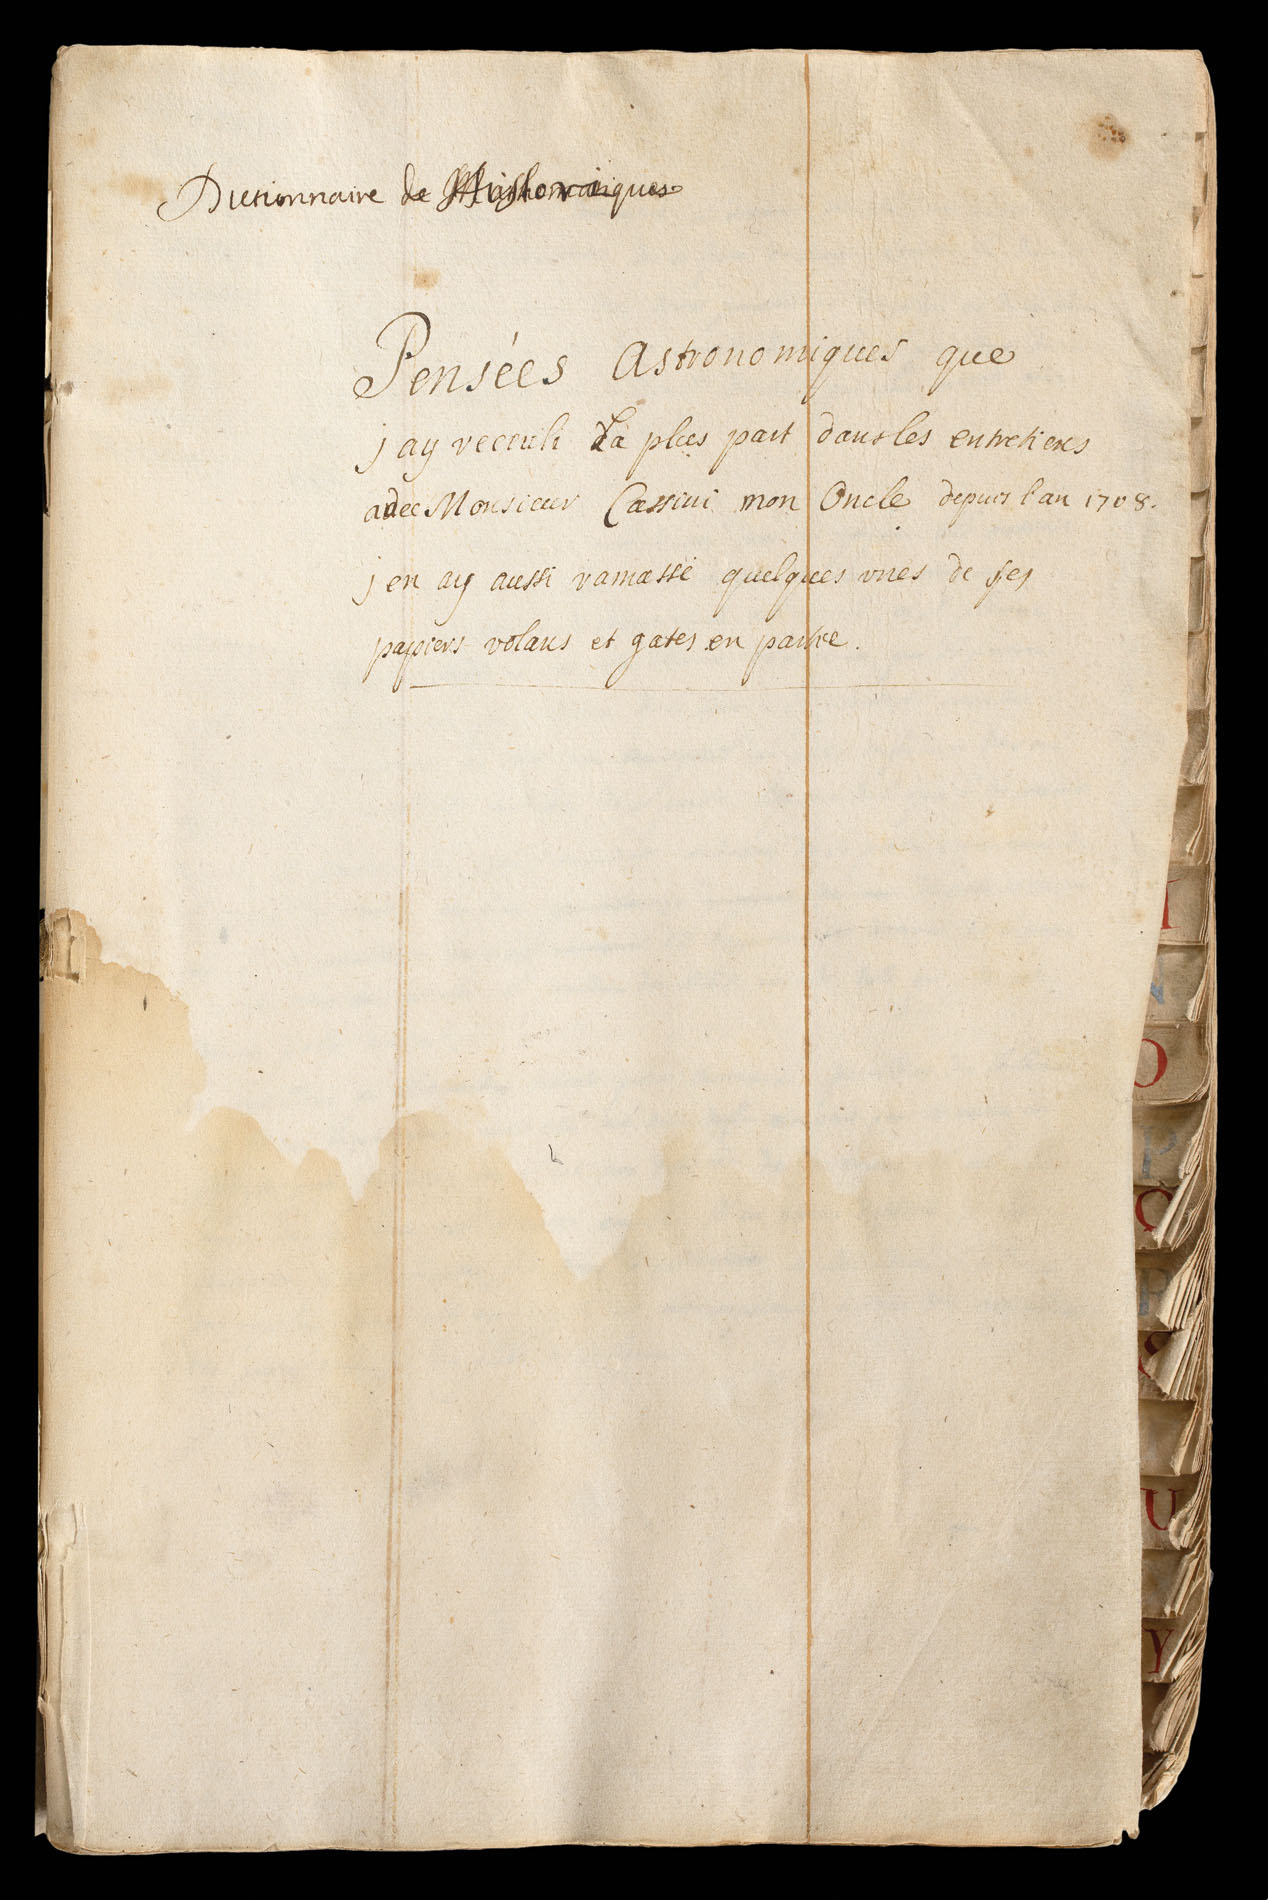 Dictionnaire de
Pensées Astronomiques que
j ay recculi La plus part dans les entretiens
avec Monsieur Cassini mon Oncle depuis l'an 1708.
j en ay aussi ramassé quelques unes de ses
papiers volans et gates en partie.
O
P
Q
U
Y